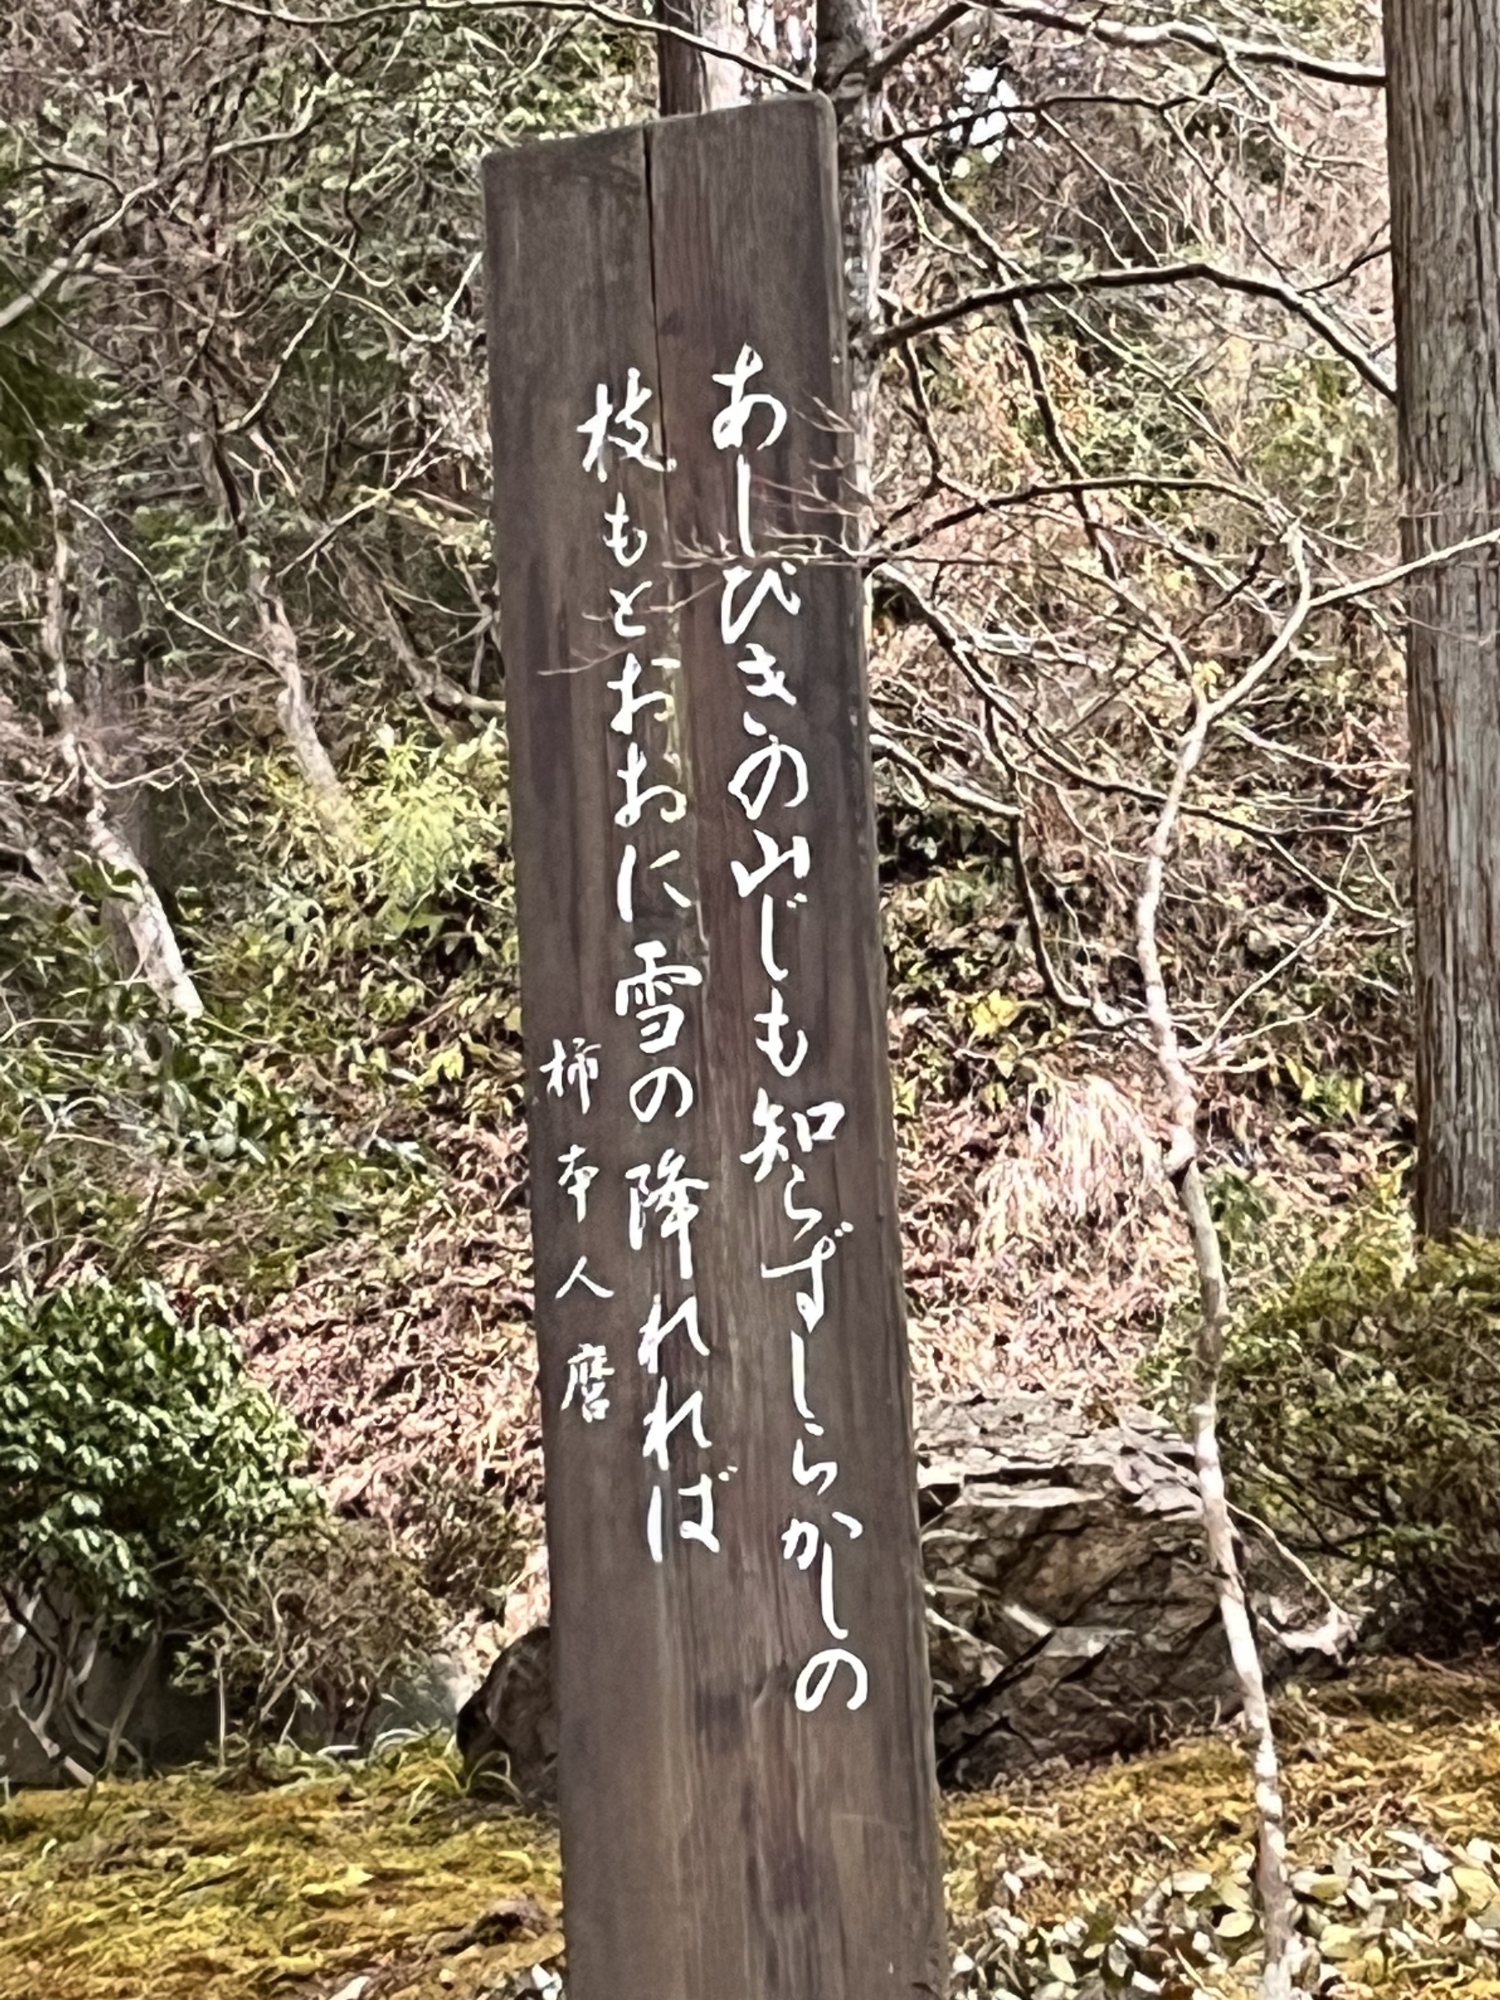 あしびきの山じも知らずしらかしの
枝もとおおに雪の降れれば
柿本人麿